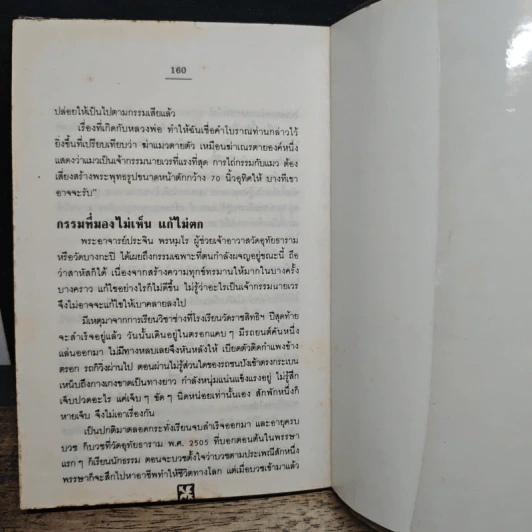 160
ปล่อยให้เป็นไปตามกรรมเสียแล้ว
เรื่องที่เกิดกับหลวงพ่อ ทำให้ฉันเชื่อคำโบราณท่านกล่าวไว้
ยิ่งขึ้นที่เปรียบเทียบว่า ฆ่าแมวตายตัว เหมือนฆ่าเณรตายองค์หนึ่ง
แสดงว่าแมวเป็นเจ้ากรรมนายเวรที่แรงที่สุด การไถ่กรรมกับแมว ต้อง
เสี่ยงสร้างพระพุทธรูปขนาดหน้าตักกว้าง 70 นิ้วอุทิศให้ บางทีเขา
อาจจะรับ"
กรรมที่มองไม่เห็น แก้ไม่ตก
พระอาจารย์ประจิน พรหมฺโร ผู้ช่วยเจ้าอาวาสวัดอุทัยธาราม
หรือวัดบางกะปิ ได้เผยถึงกรรมเฉพาะที่ตนกำลังผจญอยู่ขณะนี้ ถือ
ว่าสาหัสก็ได้ เนื่องจากสร้างความทุกข์ทรมานให้มากในบางครั้ง
บางคราว แก้ไขอย่างไรก็ไม่ดีขึ้น ไม่รู้ว่าอะไรเป็นเจ้ากรรมนายเวร
จึงไม่อาจจะแก้ไขให้เบาคลายลงไป
มีเหตุมาจากการเรียนวิชาช่างที่โรงเรียนวัดราชสิทธิฯ ปีสุดท้าย
จะสำเร็จอยู่แล้ว วันนั้นเดินอยู่ในตรอกแคบๆ มีรถยนต์คันหนึ่ง
แล่นออกมา ไม่มีทางหลบเลยจึงหันหลังให้ เบียดตัวติดกำแพงข้าง
ตรอก รถก็วิ่งผ่านไป ตอนผ่านไม่รู้ส่วนใดของรถชนบังเข้าตรงกระเบน
เหน็บถึงกางเกงขาดเป็นทางยาว กำลังหนุ่มแน่นแข็งแรงอยู่ ไม่รู้สึก
เจ็บปวดอะไร แค่เจ็บๆ ขัดๆ นิดหน่อยเท่านั้นเอง สักพักหนึ่งก็
หายเจ็บ จึงไม่เอาเรื่องกัน
เป็นปกติมาตลอดกระทั่งเรียนจบสำเร็จออกมา และอายุครบ
บวช ก็บวชที่วัดอุทัยธาราม พ.ศ. 2505 ที่บอกตอนต้นในพรรษา
แรกๆ ก็เรียนนักธรรม ตอนจะบวชตั้งใจว่าบวชตามประเพณีสักหนึ่ง
พรรษาก็จะสึกไปหาอาชีพทำให้ชีวิตทางโลก แต่เมื่อบวชเข้ามาแล้ว